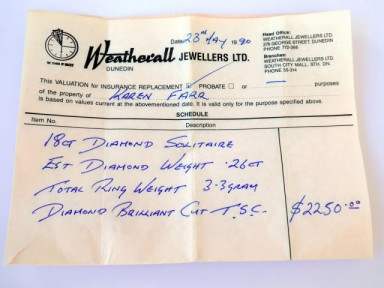 Date 23rd MAY 1990
Head Office:
WEATHERALL JEWELLERS LTD.
276 GEORGE STREET, DUNEDIN
PHONE
Weatherall JEWELLERS LTD.
DUNEDIN
Branches:
WEATHERALL JEWELLERS LTD.
SOUTH CITY MALL, STH. DN.
PHONE 55-314
This VALUATION for INSURANCE REPLACEMENT PROBATE or — purposes
of the property of KAREN FARR
is based on values current at the abovementioned date. It is valid only for the purpose specified above.
SCHEDULE
Item No. Description
18CT DIAMOND SOLITAIRE
EST DIAMOND WEIGHT .26CT
TOTAL RING WEIGHT 3.3GRAM
DIAMOND BRILLIANT CUT T.S.C. $2250.00